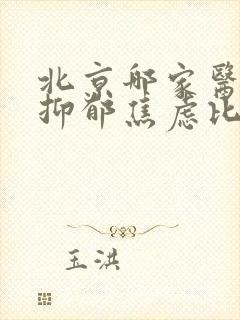 北京哪家醫
抑郁焦虑比
玉洪